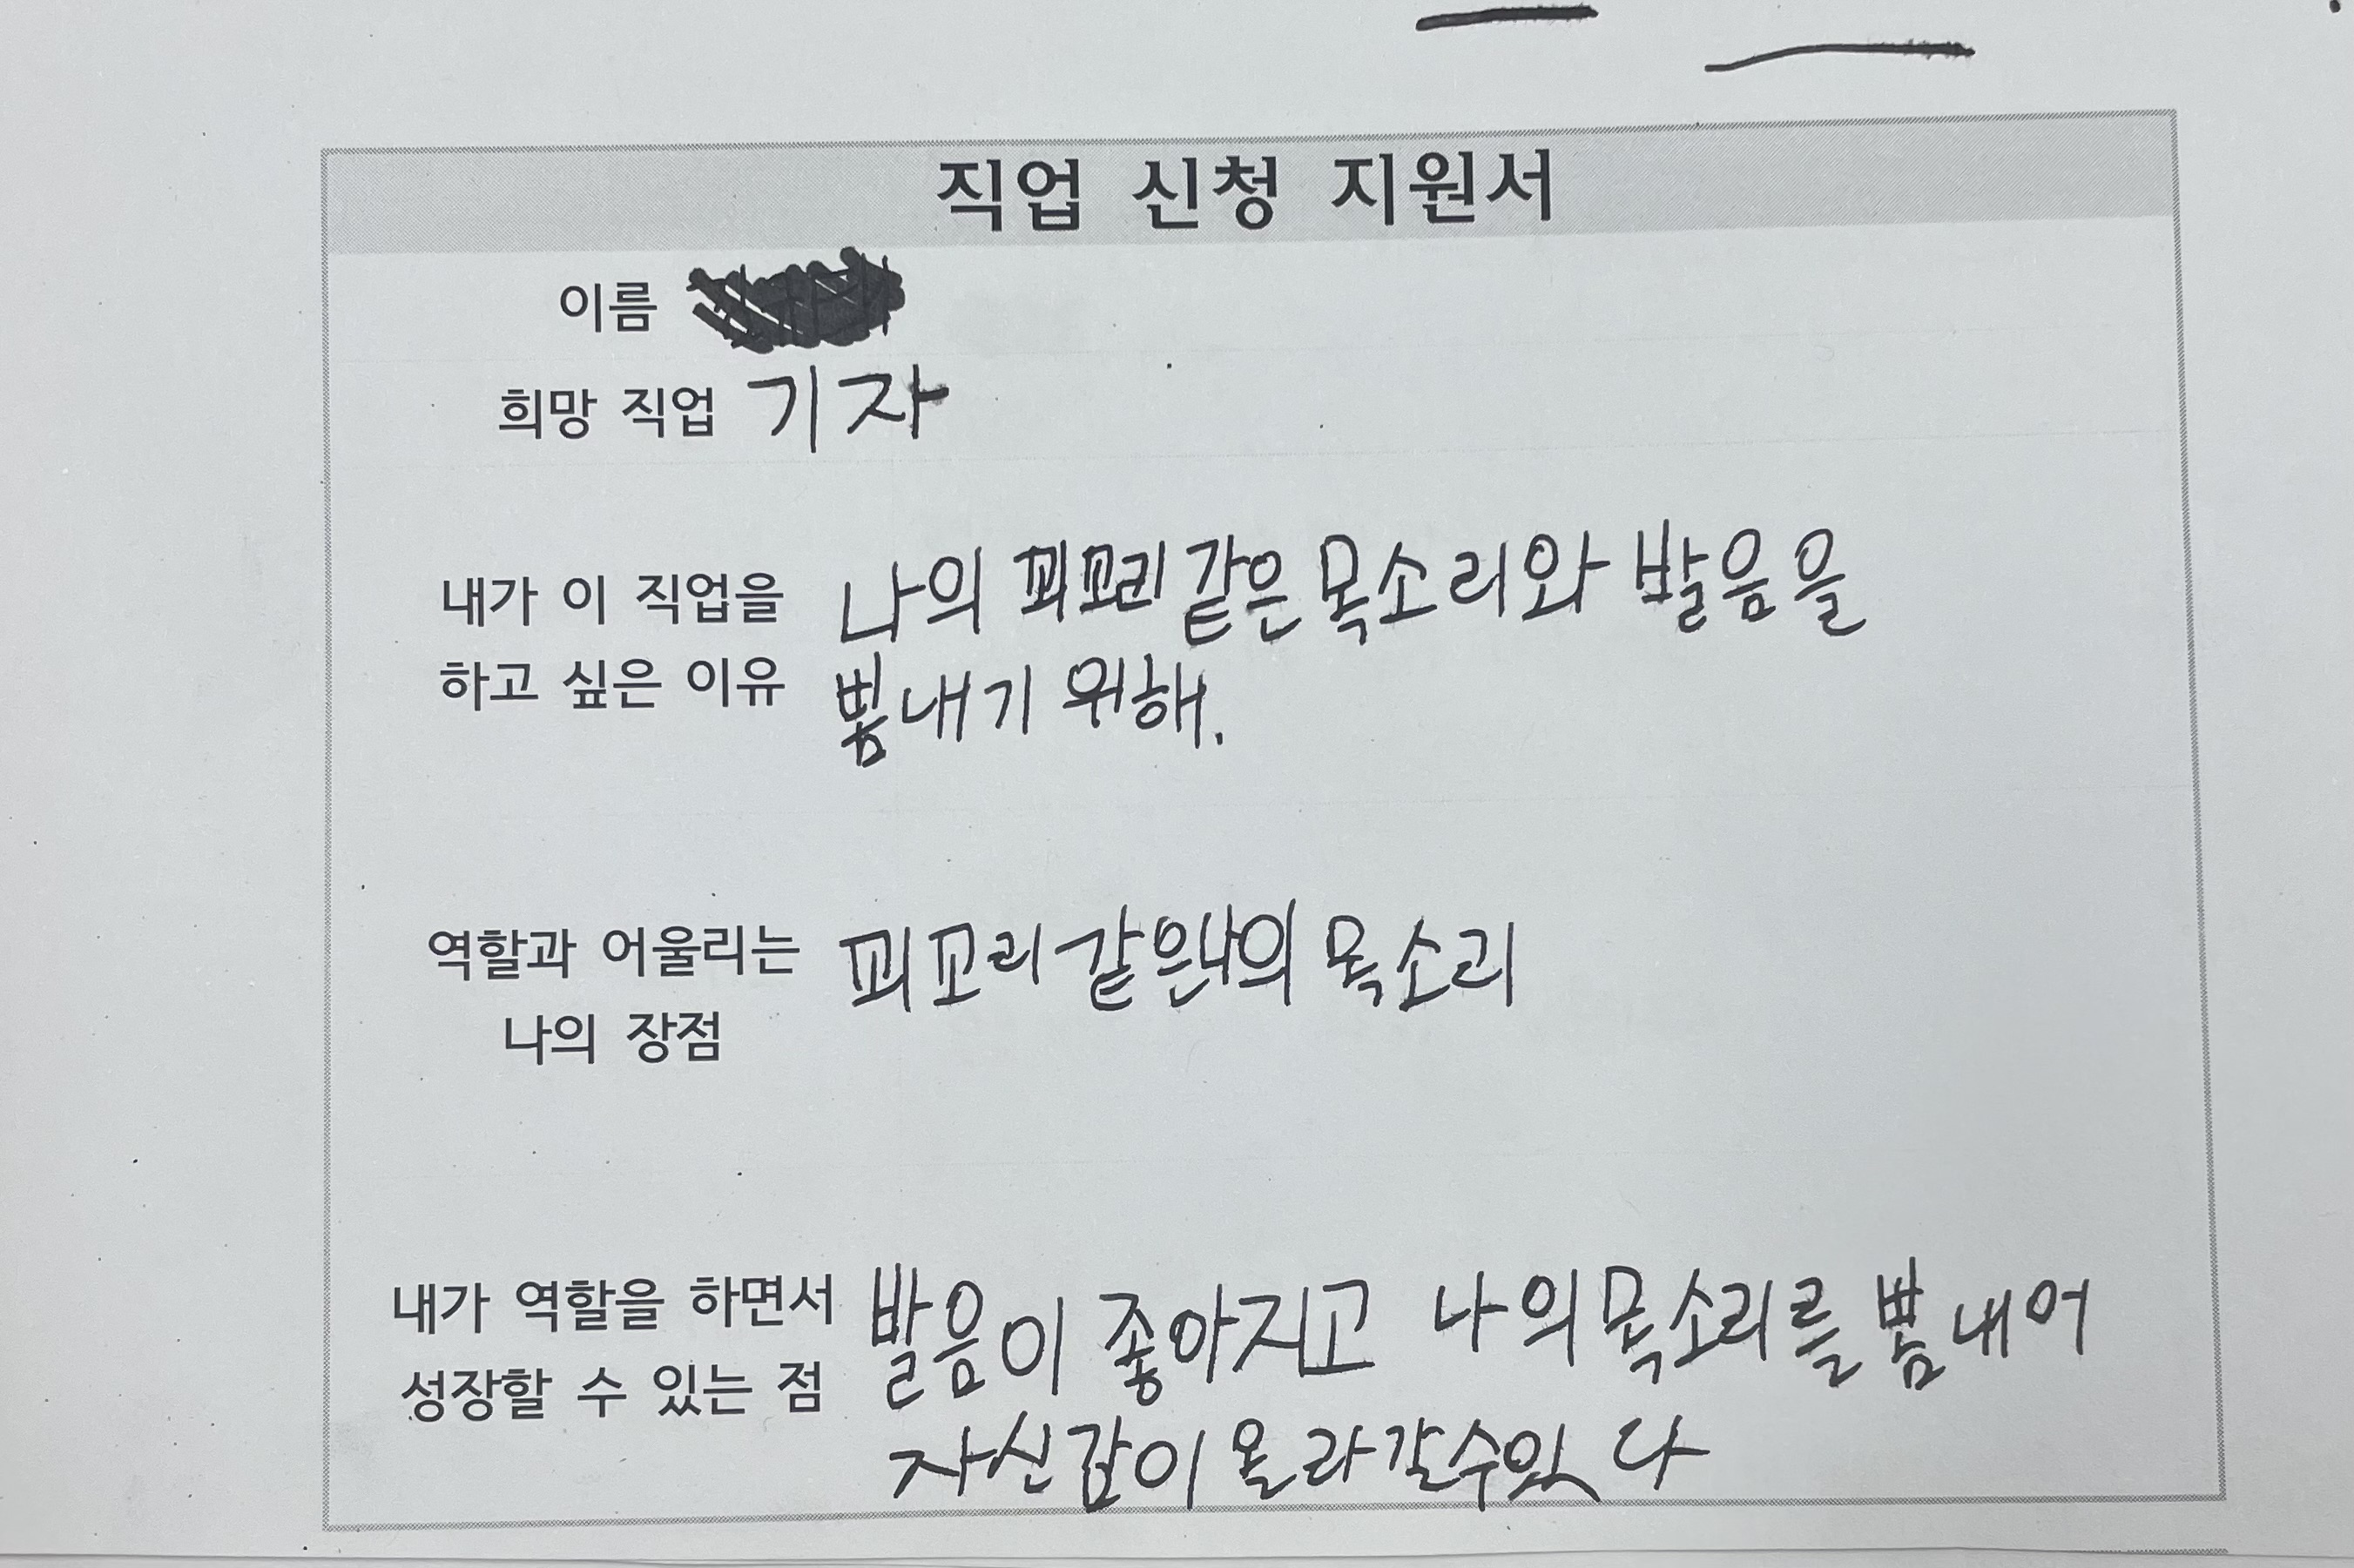 직업 신청 지원서
이름
희망 직업 기자
내가 이 직업을 나의 꾀꼬리 같은 목소리와 발음을
하고 싶은 이유 뽐내기 위해.
역할과 어울리는 꾀꼬리 같은 나의 목소리
나의 장점
내가 역할을 하면서 발음이 좋아지고 나의 목소리를 뽐내어
성장할 수 있는 점 자신감이 올라갈 수 있다